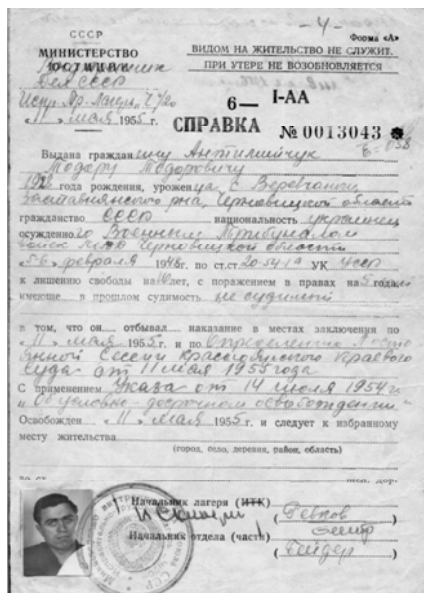 - 4 -
СССР
Форма «А»
МИНИСТЕРСТВО
ЮСТИЦИИ
ВИДОМ НА ЖИТЕЛЬСТВО НЕ СЛУЖИТ.
ПРИ УТЕРЕ НЕ ВОЗОБНОВЛЯЕТСЯ
Дел СССР
6— I-АА
„11" мая 1955 г.
СПРАВКА № 0013043
Выдана гражданину Антилийчук
Тодору Тодоровичу
года рождения, уроженца с.
Заставнянского р-на, Черновицкой области
гражданство СССР национальность украинец
осужденного Военным Трибуналом
войск Черновицкой области
5-6 февраля 1946г. по ст.ст. 20-54-1а УК УССР
к лишению свободы на 10 лет, с поражением в правах на 5 года,
имеюще в прошлом судимость не судимый
в том, что он отбывал наказание в местах заключения по
„11" мая 1955 г. и по определению Посто
янной Сессии Красноярского Краевого
суда от 11 мая 1955 года
С применением Указа от 14 июля 1954 г
„Об условно-досрочном освобождении"
Освобожден „11" мая 1955 г. и следует к избранному
месту жительства
(город, село, деревня, район, область)
Начальник лагеря (ИТК)
Начальник отдела (части)
(Гейдер)